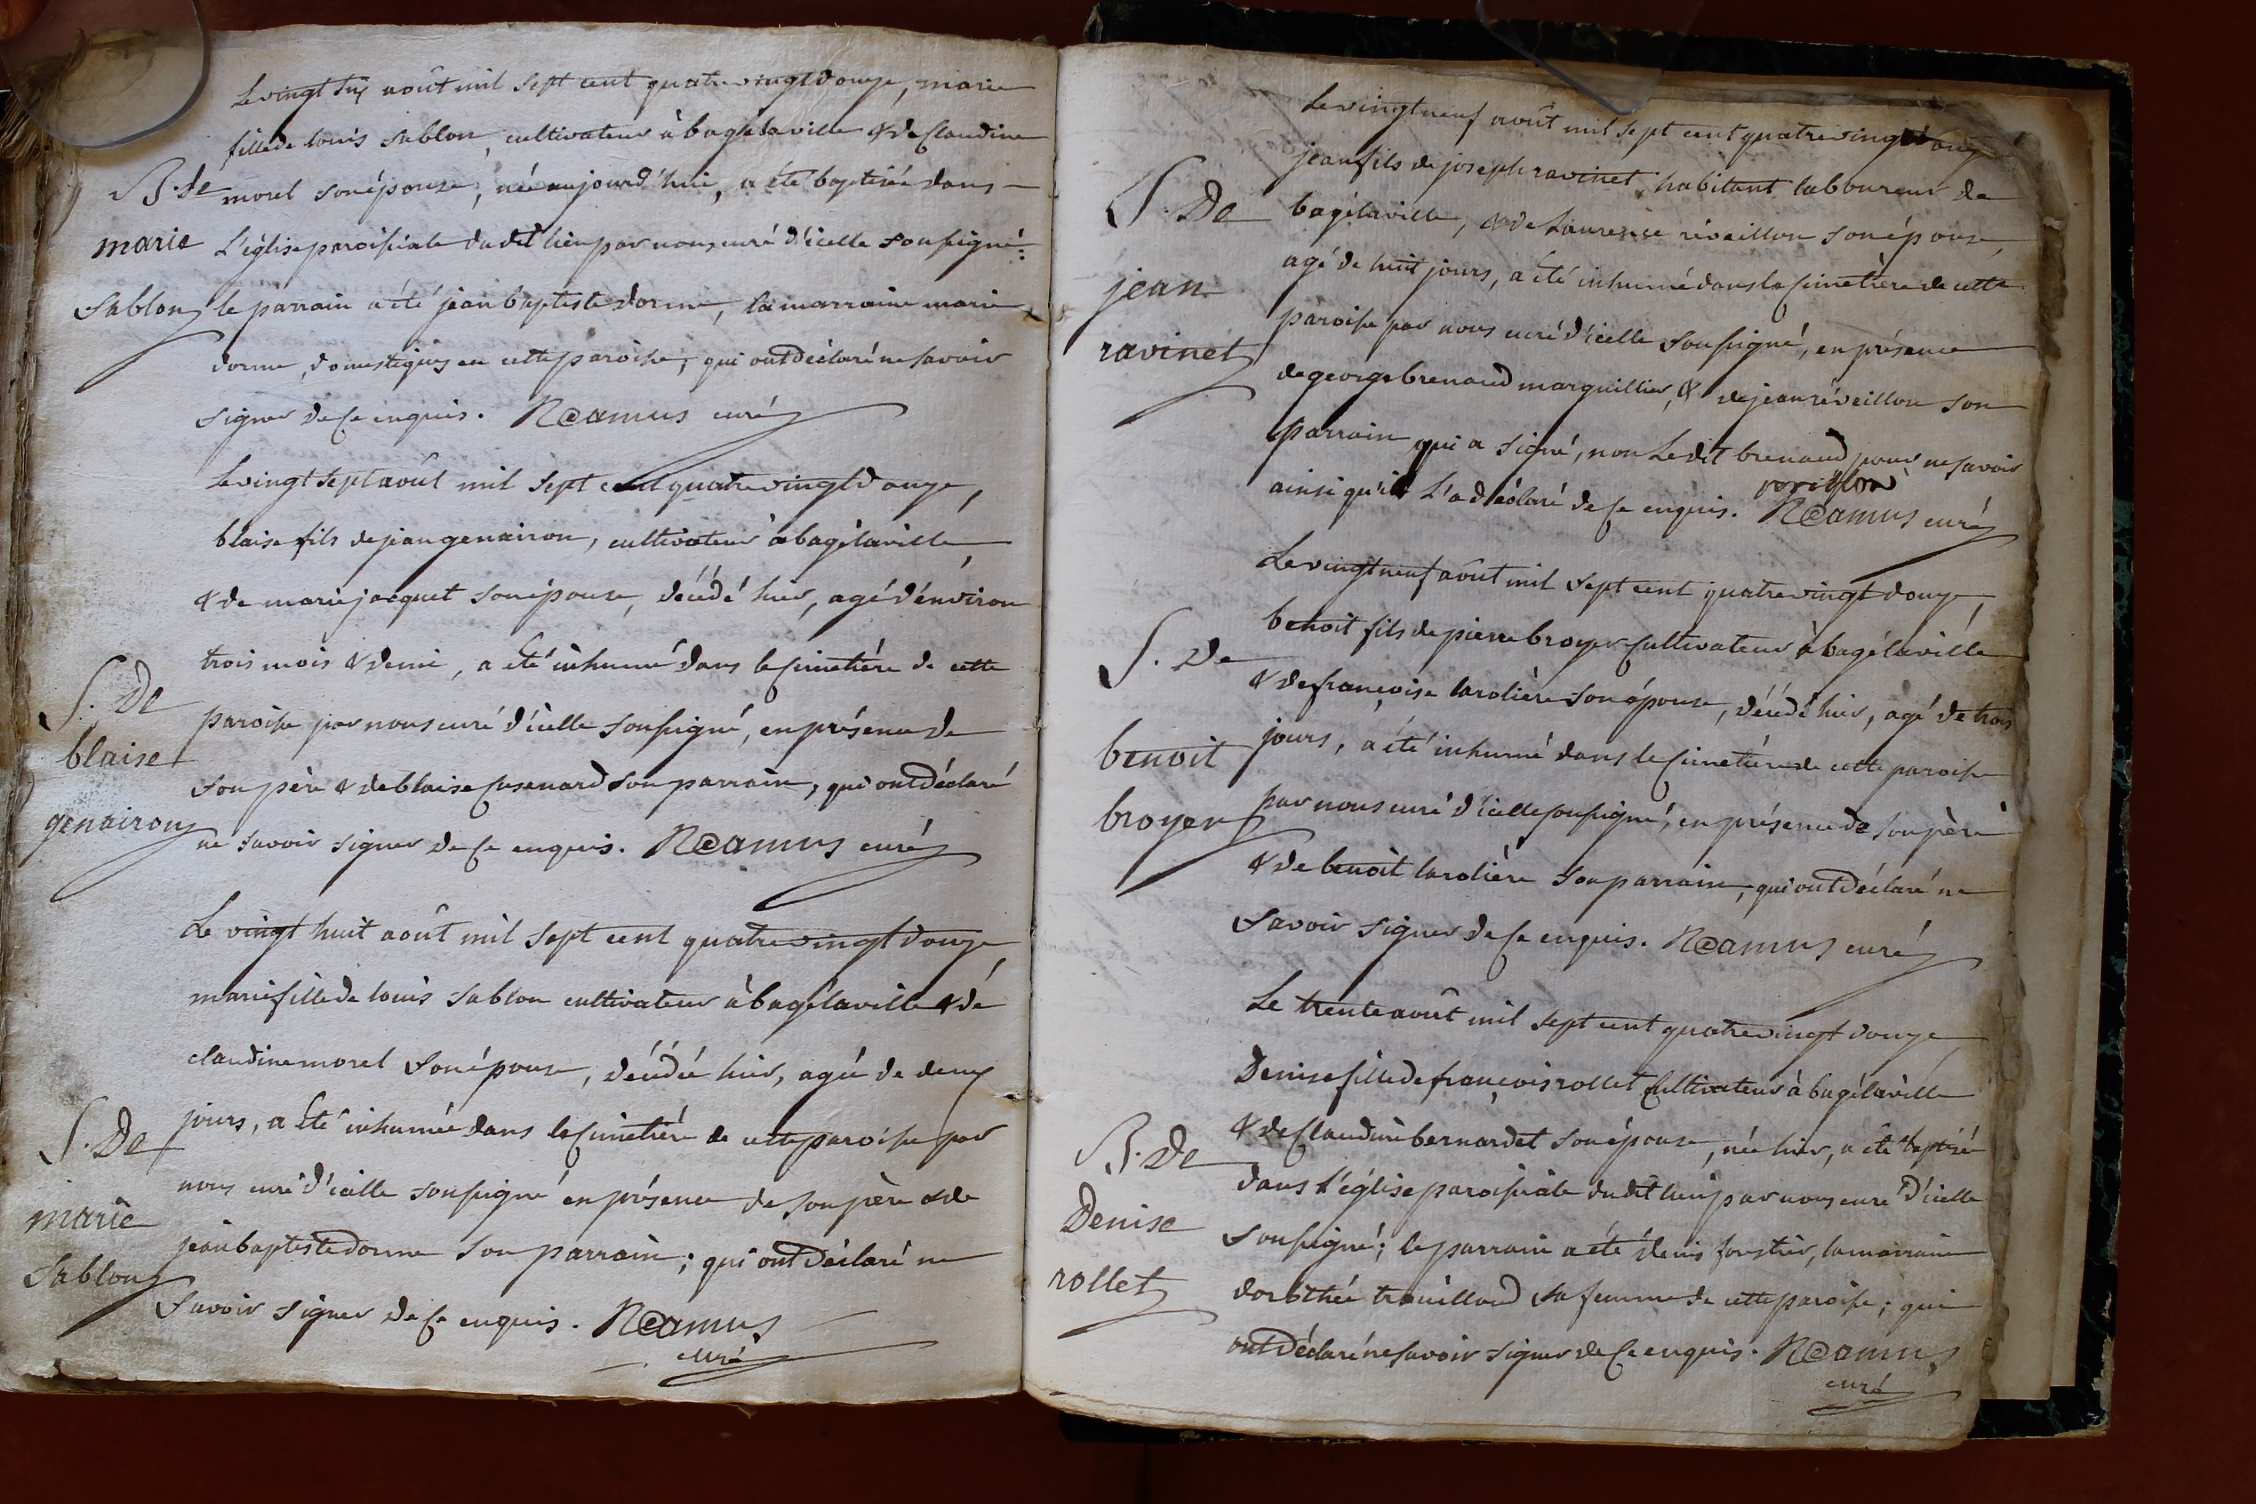 Le vingt six août mil sept cent quatre vingt douze, marie
fille de louis sablon, cultivateur à bagélaville & de Claudine
B. de
morel son épouse, née aujourd'hui, a été baptisée dans
marie
L'église paroissiale dudit lieu par nous curé d'icelle soussigné:
Sablon
le parrain a été jean baptiste dorme, la marraine marie
dorme, domestiques en cette paroisse, qui ont déclaré ne savoir
signer de ce enquis. Ncamus curé
Le vingt sept août mil sept cent quatre vingt douze,
blaise fils de jean genairon, cultivateur à bagélaville,
& de marie jacquet son épouse, décédé hier, agé d'environ
trois mois & demi, a été inhumé dans le Cimetière de cette
S. De
paroisse par nous curé d'icelle soussigné, en présence de
blaise
son père & de blaise Cusenard son parrain, qui ont déclaré
genairon
ne savoir signer de ce enquis. Ncamus curé
Le vingt huit août mil sept cent quatre vingt douze,
marie fille de louis sablon cultivateur à bagélaville & de
claudine morel son épouse, décédée hier, agée de deux
S. De
jours, a été inhumée dans le Cimetière de cette paroisse par
nous curé d'icelle soussigné en présence de son père & de
marie
jean baptiste dorme son parrain; qui ont déclaré ne
Sablon
Savoir signer de ce enquis. Ncamus
curé
Le vingt neuf août mil sept cent quatre vingt douze
jean fils de joseph ravinet habitant laboureur de
S. De
bagélaville, & de Laurence réveillon son épouse,
agé de huit jours, a été inhumé dans le Cimetière de cette
jean
paroisse par nous curé d'icelle soussigné, en présence
ravinet
de george brenaud marguillier, & de jean réveillon son
parrain qui a signé, non Ledit brenaud pour ne savoir
ainsi qu'il L'a déclaré de ce enquis. Ncamus curé
Le vingt neuf août mil sept cent quatre vingt douze,
benoit fils de pierre broyer Cultivateur à bagélaville
S. De
& de françoise larolière son épouse, décédé hier, agé de trois
benoit
jours, a été inhumé dans le Cimetière de cette paroisse
broyer
par nous curé d'icelle soussigné, en présence de son père
& de benoit larolière son parrain, qui ont déclaré ne
Savoir signer de ce enquis. Ncamus curé
Le trente août mil sept cent quatre vingt douze,
Denise fille de françois rollet Cultivateur à bagélaville
B. De
& de Claudine bernardet son épouse, née hier, a été baptisée
dans l'église paroissiale dudit lieu par nous curé d'icelle
Denise
soussigné; le parrain a été denis forestier, la marraine
rollet
dorothée trouilloud sa femme de cette paroisse; qui
ont déclaré ne savoir signer de ce enquis. Ncamus
curé